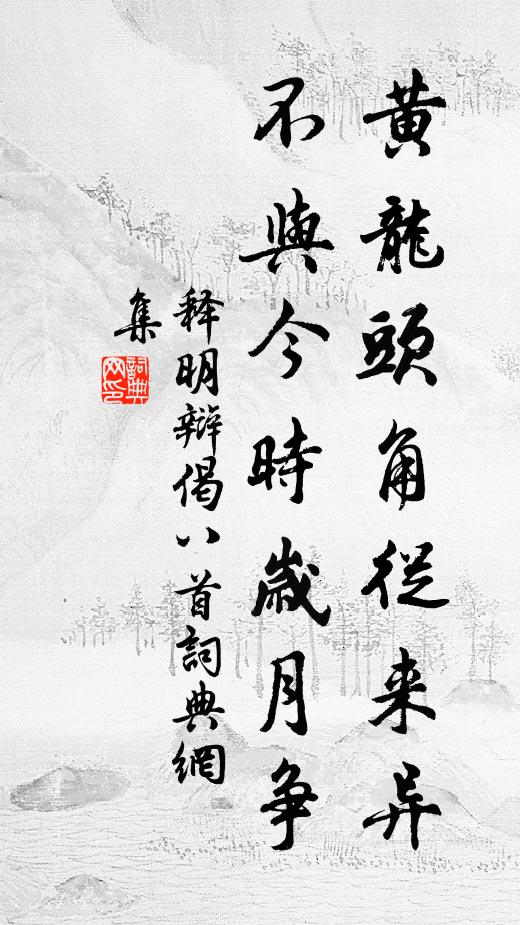 黄龍頭角從来异
不與今時歲月争
释明辯偈八首詞典網
集
詞典网印